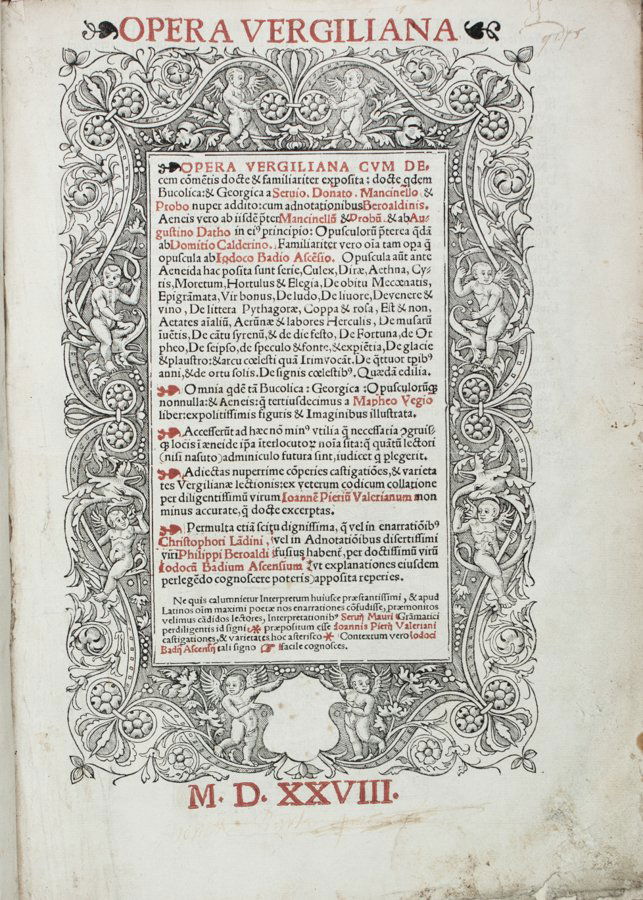 OPERA VERGILIANA
OPERA VERGILIANA CVM DE,
cem cōmētis docte & familiariter exposita: docte qdem
Bucolica: & Georgica a Seruio, Donato, Mancinello &
Probo nuper addito: cum adnotationibus Beroaldinis.
Aeneis vero ab iisdē pter Mancinellū & Probū, & ab Au,
gustino Datho in ei⁹ principio: Opusculorū pterea qdā
ab Domitio Calderino. Familiariter vero oīa tam opa q̄
opuscula ab Iodoco Badio Ascēsio. Opuscula aūt ante
Aeneida hac posita sunt serie, Culex, Diræ, Aethna, Cy-
ris, Moretum, Hortulus & Elegia, De obitu Mecœnatis,
Epigrāmata, Vir bonus, De ludo, De liuore, De venere &
vino, De littera Pythagoræ, Coppa & rosa, Est & non,
Aetates aīaliū, Aerūnæ & labores Herculis, De musarū
iuētis, De cātu syrenū, & de die festo, De Fortuna, de Or
pheo, De seipso, de speculo & fonte, & expiētia, De glacie
& plaustro: & arcu cœlesti quā Irim vocāt. De q̄ttuor tpib⁹
anni, & de ortu solis. De signis cœlestib⁹. Quædā edilia.
Omnia qdē tā Bucolica: Georgica: Opusculorūq;
nonnulla: & Aeneis: q̄ tertiusdecimus a Mapheo Vegio
liber: expolitissimis figuris & Imaginibus illustrata.
Accesserūt ad hæc nō min⁹ vtilia q̄ necessaria
q; locis ī æneide ipa īterlocutoꝝ noīa sita: q̄ quātū lectori
(nisi nasuto) adminiculo futura sint, iudicet q̄ plegerit.
Adiectas nuperrime cōperies castigatiōes, & varieta
tes Vergilianæ lectionis: ex veterum codicum collatione
per diligentissimū virum Ioannē Pieriū Valerianum non
minus accurate, q̄ docte excerptas.
Permulta etiā scitu dignissima, q̄ vel in enarratiōib⁹
Christophori Lādini, vel in Adnotatiōibus disertissimi
viri Philippi Beroaldi fusius habent, per doctissimū virū
Iodocū Badium Ascensium (vt explanationes eiusdem
perlegēdo cognoscere poteris) apposita reperies.
Ne quis calumnietur Interpretum huiusce præstantissimi, & apud
Latinos oīm maximi poetæ nos enarrationes cōfudisse, præmonitos
velimus cādidos lectores, Interpretationib⁹ Seruij Mauri Grāmatici
perdiligentis id signi ⁎ præpositum esse Ioannis Pierij Valeriani
castigationes, & varietates hoc asterisco ⁎ Contextum vero Iodoci
Badij Ascensij tali signo ☞ facile cognosces.
M. D. XXVIII.